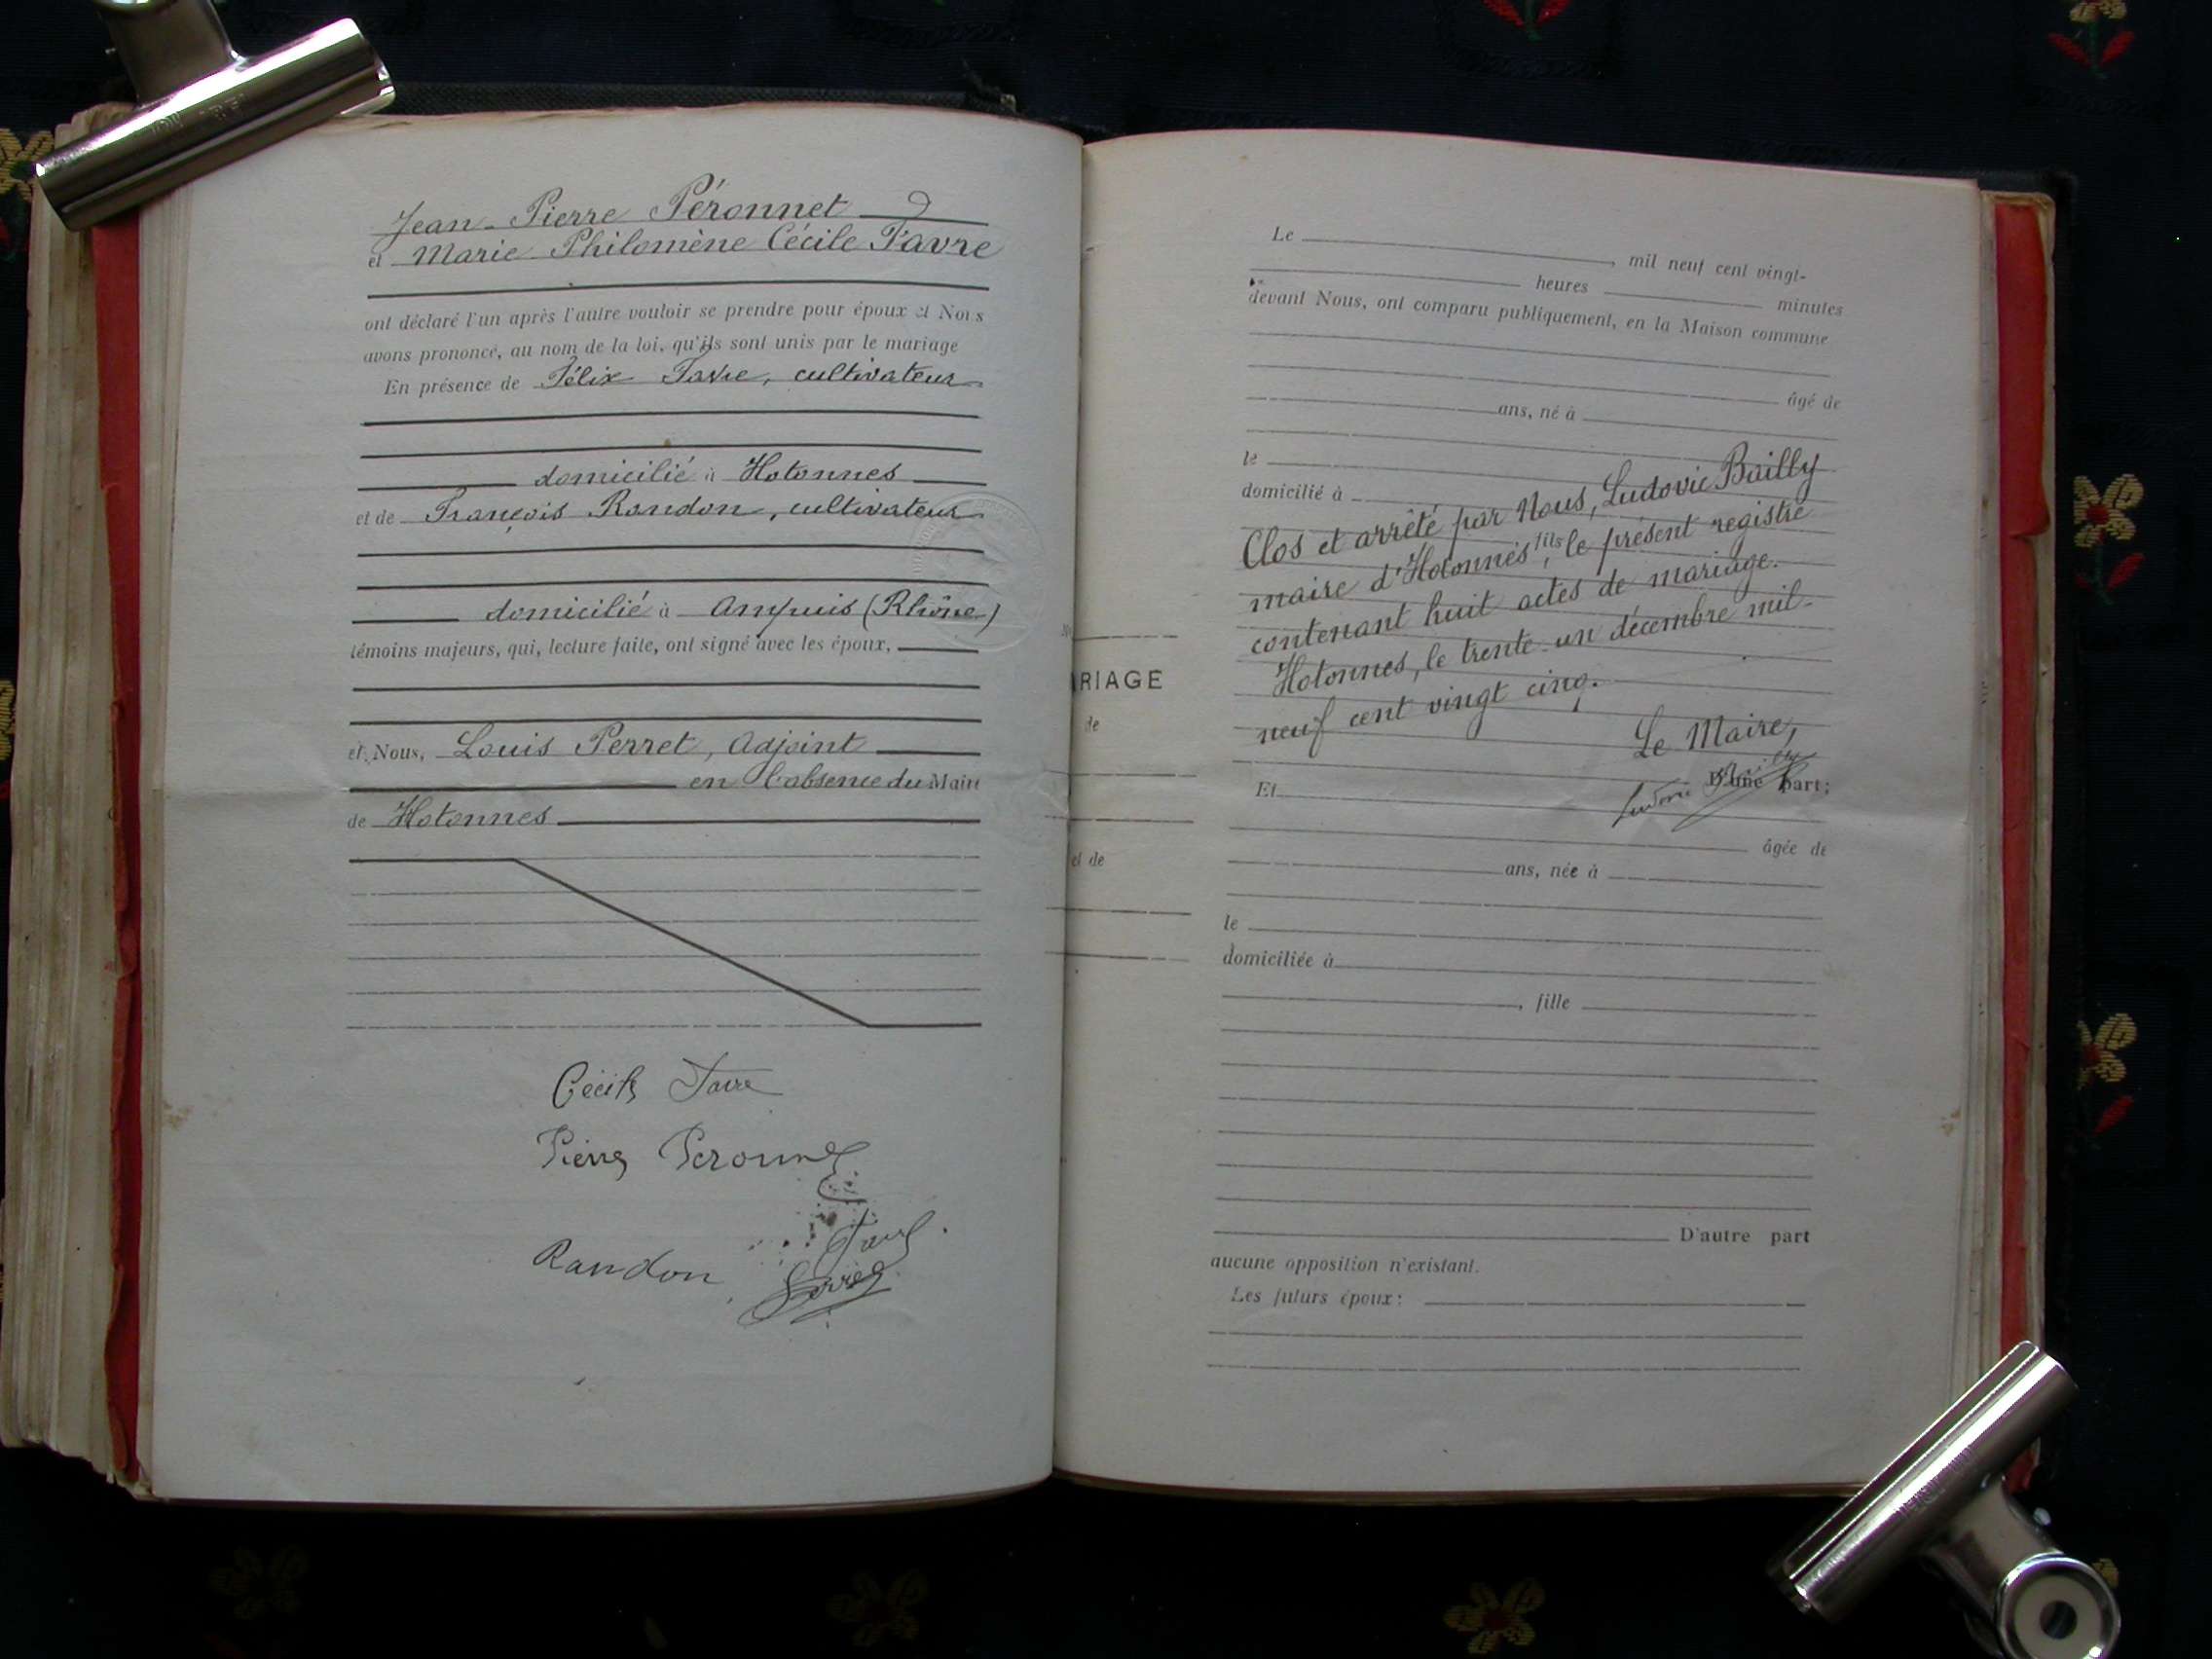 Jean-Pierre Péronnet
et Marie Philomène Cécile Favre
ont déclaré l'un après l'autre vouloir se prendre pour époux et Nous
avons prononcé, au nom de la loi, qu'ils sont unis par le mariage
En présence de Félix Favre, cultivateur
domicilié à Hotonnes
et de François Randon, cultivateur
domicilié à Ampuis (Rhône)
témoins majeurs, qui, lecture faite, ont signé avec les époux,
et Nous, Louis Perret, Adjoint
en l'absence du Maire
de Hotonnes
Cécile Favre
Pierre Peronnet
Favre
Randon
Perret
RIAGE
de
et de
Le , mil neuf cent vingt-
heures minutes
devant Nous, ont comparu publiquement, en la Maison commune
âgé de
ans, né à
le
domicilié à
Clos et arrêté par Nous, Ludovic Bailly
maire d'Hotonnes fils, le présent registre
contenant huit actes de mariage.
Hotonnes, le trente-un décembre mil-
neuf cent vingt cinq.
Le Maire,
Ludovic Bailly
D'une part;
Et
âgée de
ans, née à
le
domiciliée à
, fille
D'autre part
aucune opposition n'existant.
Les futurs époux: